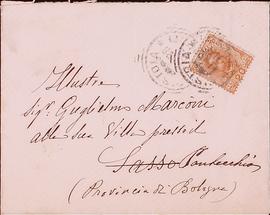 Illustre
Sig. Guglielmo Marconi
alla sua Villa presso di
Sasso Pontecchio
(Provincia di Bologna)